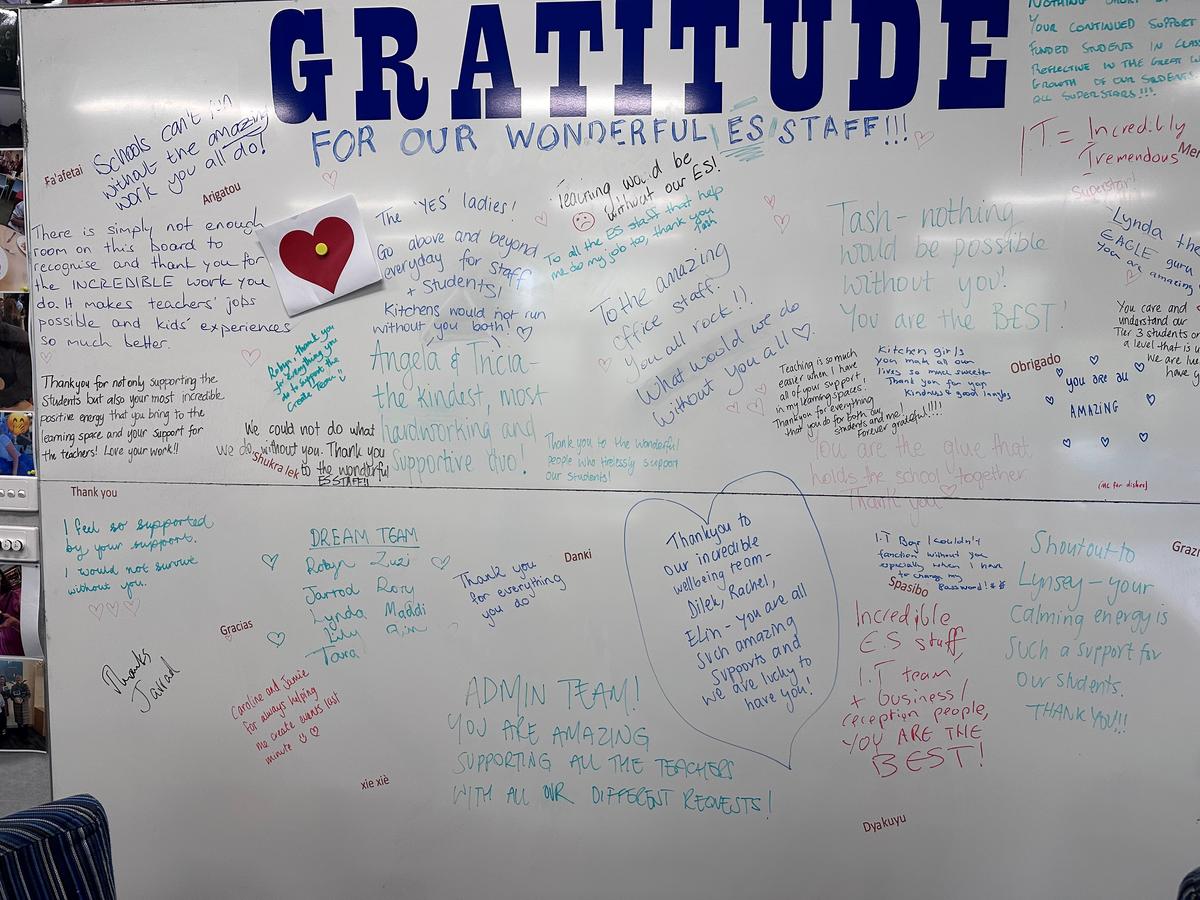 GRATITUDE
FOR OUR WONDERFUL ES STAFF!!!
YOUR CONTINUED SUPPORT
FUNDED STUDENTS IN CLASS
REFLECTIVE IN THE GREAT
GROWTH OF OUR STUDENTS
ALL SUPERSTARS!!!
I.T = Incredibly
Tremendous
Superstar!
Fa'afetai
Schools can't run
without the amazing
work you all do!
Arigatou
There is simply not enough
room on this board to
recognise and thank you for
the INCREDIBLE work you
do. It makes teachers' jobs
possible and kids' experiences
so much better.
The 'YES' ladies!
Go above and beyond
everyday for staff
+ students!
Kitchens would not run
without you both!
Teaching would be
without our ES!
To all the ES staff that help
me do my job too, thank you
Tash
To the amazing
office staff.
You all rock!!
What would we do
without you all
Tash - nothing
would be possible
without you!
You are the BEST!
Lynda the
EAGLE guru
you are amazing
You care and
understand our
Tier 3 students on
a level that is
We are
have
Robyn, thank you
for everything you
do to support the
Create Team
Thankyou for not only supporting the
students but also your most incredible
positive energy that you bring to the
learning space and your support for
the teachers! Love your work!!
We could not do what
we do without you. Thank you
to the wonderful
ES STAFF!!
Shukra lek
Angela & Tricia -
the kindest, most
hardworking and
supportive duo!
Thank you to the wonderful
people who tirelessly support
our students!
Teaching is so much
easier when I have
all of your support,
in my learning spaces!
Thank you for everything
that you do for both our
students and me!
Forever grateful!!!!
Kitchen girls
you make all our
lives so much sweeter
Thank you for your
Kindness & good laughs
Obrigado
you are all
AMAZING
You are the glue that
holds the school together
Thank you
Thank you
I feel so supported
by your support.
I would not survive
without you.
Gracias
DREAM TEAM
Robyn Zuzi
Jarrod Rory
Lynda Maddi
Lily
Tara
Thank you
for everything
you do
Danki
Thankyou to
our incredible
wellbeing team -
Dilek, Rachel,
Elin - you are all
such amazing
supports and
we are lucky to
have you!
I.T Boys I couldn't
function without you
especially when I have
to change my
password!
Spasibo
Incredible
E.S staff,
I.T team
+ business/
reception people,
YOU ARE THE
BEST!
Shoutout to
Lynsey - your
calming energy is
such a support for
our students.
THANK YOU!!
Thanks
Jarrad
Caroline and Jamie
for always helping
me create events last
minute
xie xiè
ADMIN TEAM!
YOU ARE AMAZING
SUPPORTING ALL THE TEACHERS
WITH ALL OUR DIFFERENT REQUESTS!
Dyakuyu